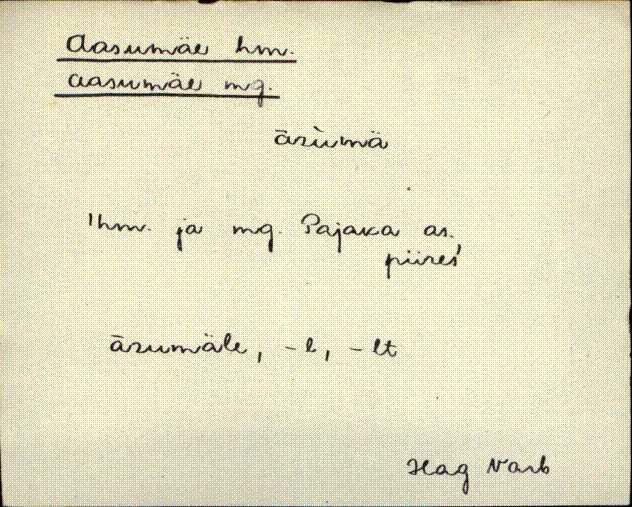 Aasumäe hm.
Aasumäe mg.
āsùmä
'hm. ja mg. Pajaka as.
piires'
āsumäle, -l, -lt
Hag Varb